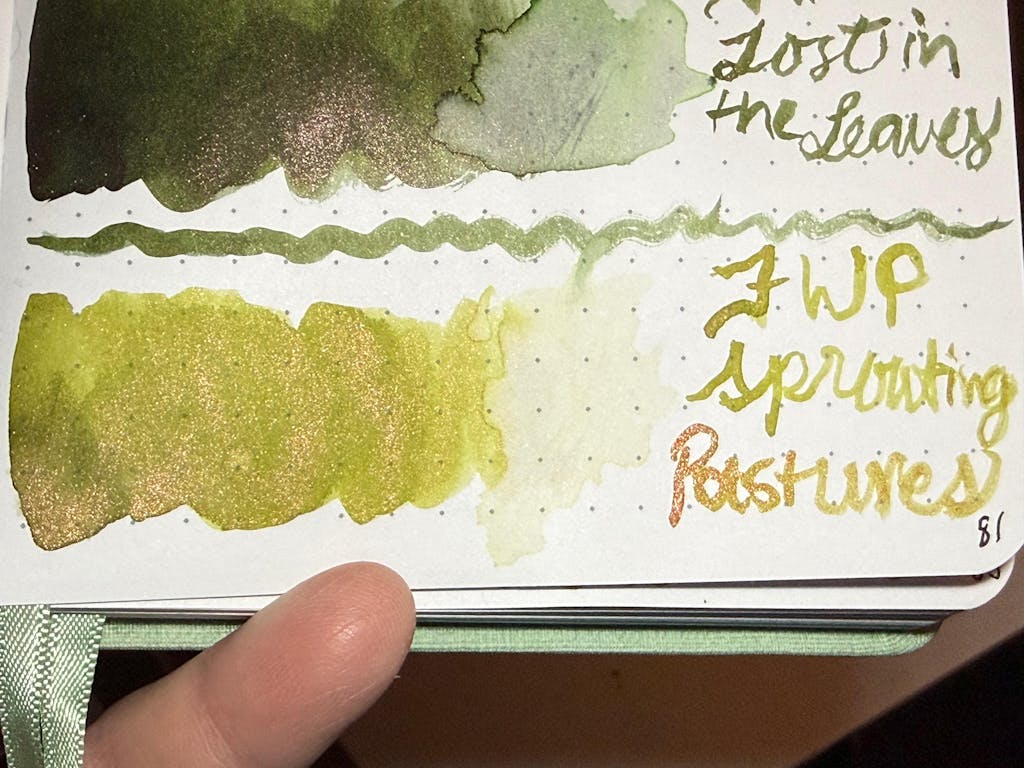 Lost in
the Leaves
FWP
sprouting
Pastures
81